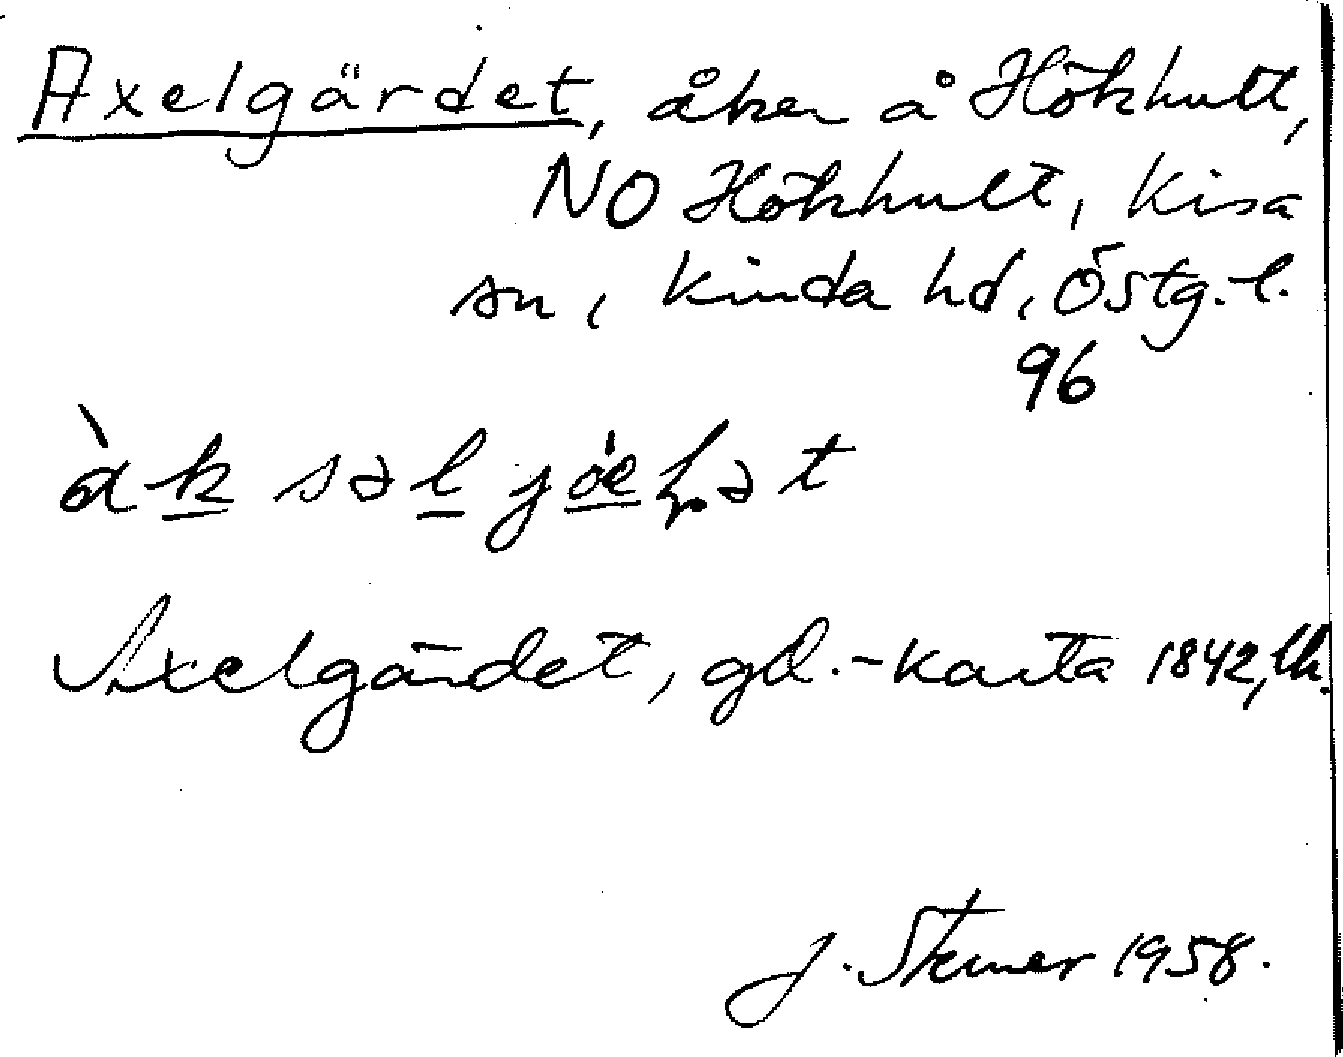 Axelgärdet, åker å Hökhult,
NO Hökhult, Kisa
sn, Kinda hd, Östg. l.
96
Axelgärdet, gd.-karta 1842, lk.
J. Stemer 1958.